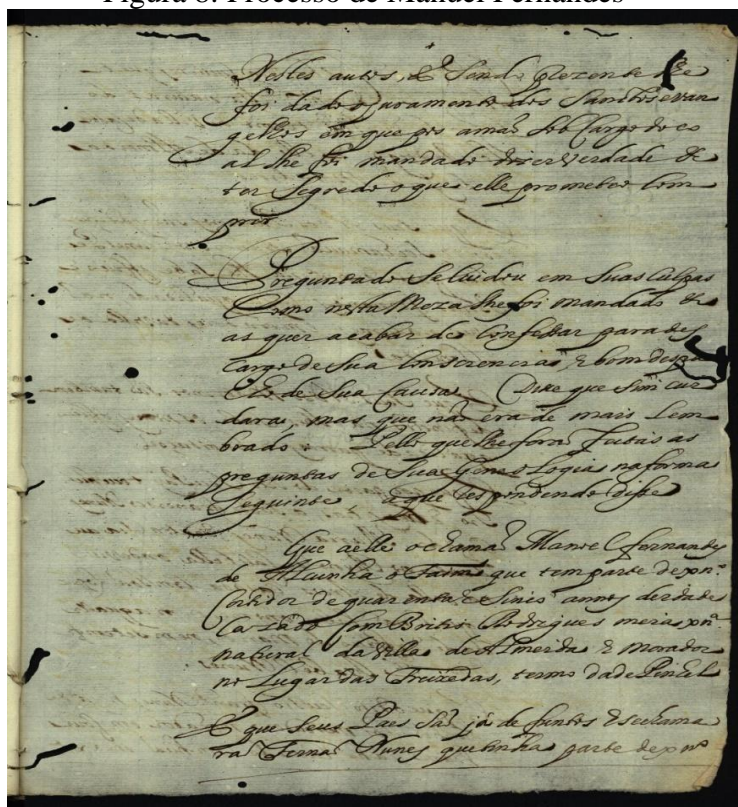 Figura 8: Processo de Manuel Fernandes
Nestes autos, & sendo prezente lhe
foi dado o juramento dos Sanctos evan
gelhos em que pos a maõ sob Cargo do co
al lhe foi mandado dizer verdade &
ter segredo o que elle prometeo Com
prir
Preguntado se Cuidou em suas Culpas
Como nesta Meza lhe foi mandado &
as quer acabar de Confessar para des
Cargo de sua Consciencia, & bom despa
cho de sua Cauza, Dixe que sim cui
dara, mas que naõ era de mais Lem
brado. Pello que lhe foraõ feitas as
preguntas de sua Genealogia na forma
seguinte a que respondendo disse
Que a elle o chamaõ Manoel fernandes
de Alcunha o que tem parte de xnº
Cortidor de quarenta & sinco annos de idade
Cazado Com Brites Rodrigues meia xnª
natural da villa de Almeida & morador
no Lugar das Freixedas, termo da de Pinhel
E que seus Paes saõ já defuntos & se chama
raõ Fernaõ Nunes que tinha parte de xnº